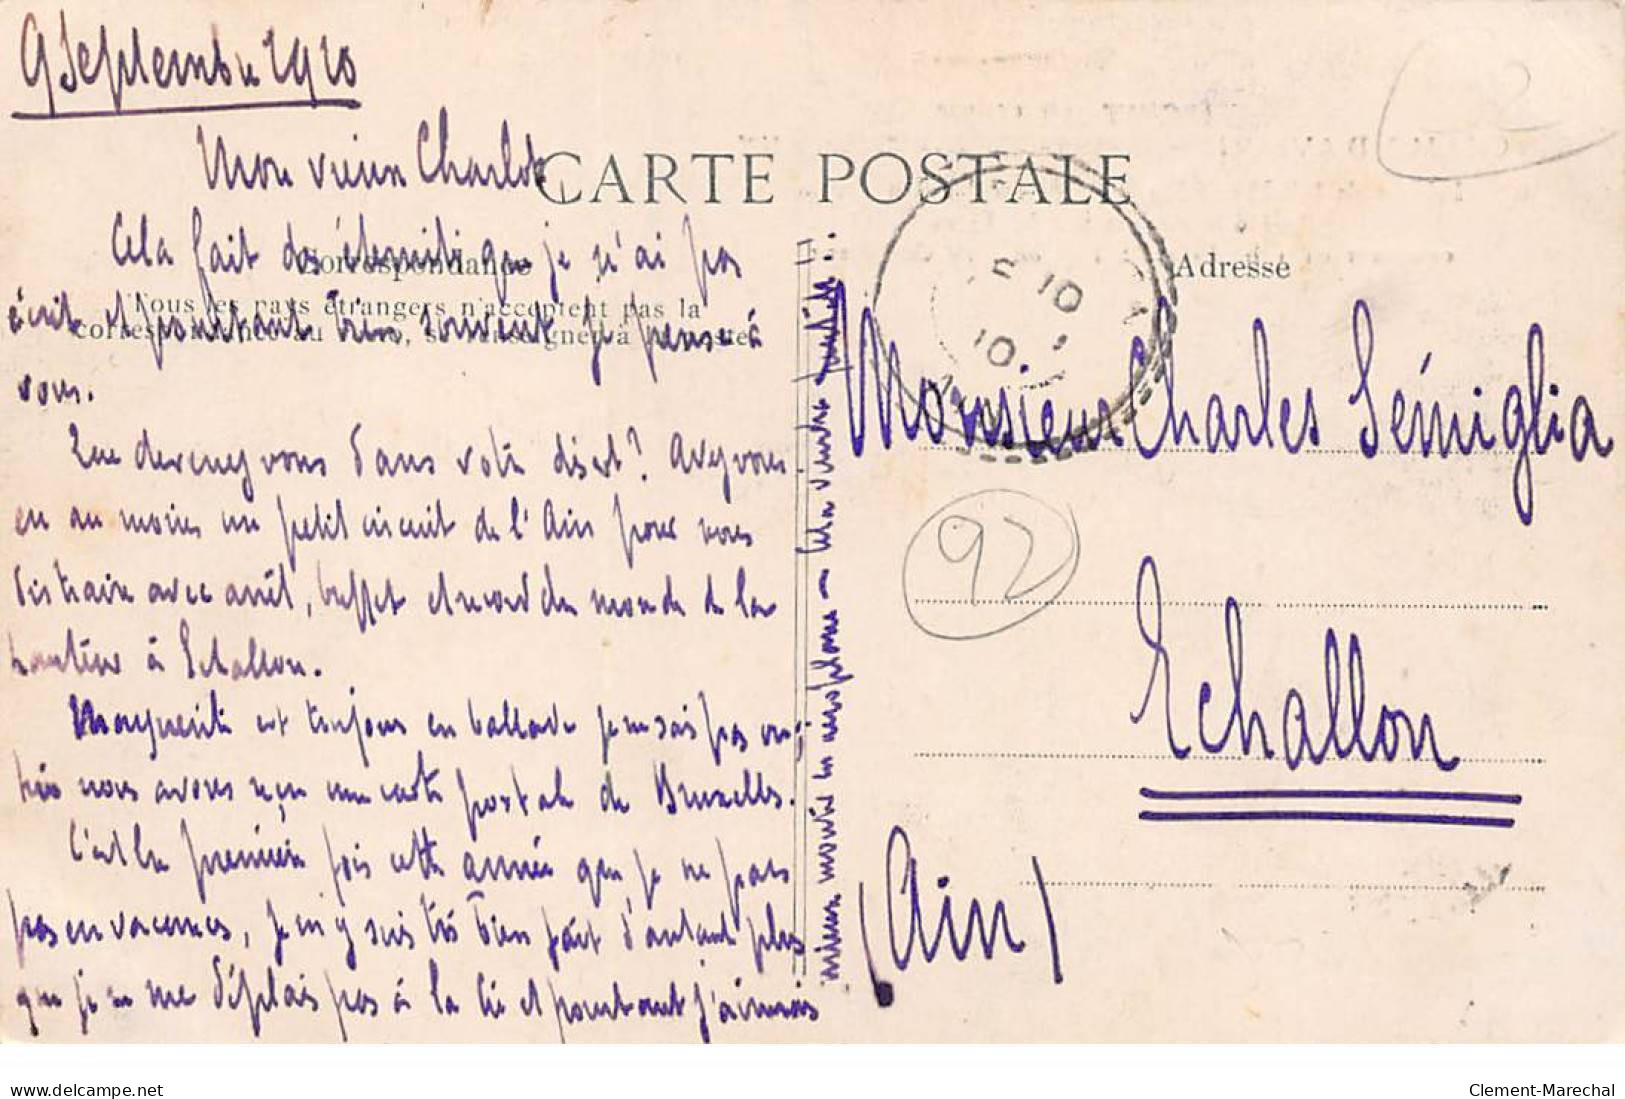 9 Septembre 1910
Mon vieux Charlot
CARTE POSTALE
Cela fait des éternités que je n'ai pas
Correspondance
Tous les pays étrangers n'acceptent pas la
écrit et pourtant bien souvent je pense à
correspondance au recto, se renseigner à la poste
vous.
Que devenez vous dans votre désert? Avez vous
eu au moins un petit circuit de l'Ain pour vous
distraire avec arrêt, buffet et record du monde de la
hauteur à Echallon.
Marguerite est toujours en ballade je ne sais pas où
nous avons reçu une carte postale de Bruxelles.
C'est la première fois cette année que je ne pars
pas en vacances, je m'y suis très bien fait d'autant plus
que je ne me déplais pas à la et pourtant j'aimais
mieux mon
Adresse
10
10
Monsieur Charles Sémiglia
92
Echallon
(Ain)
delcampe.net
Clement-Marechal